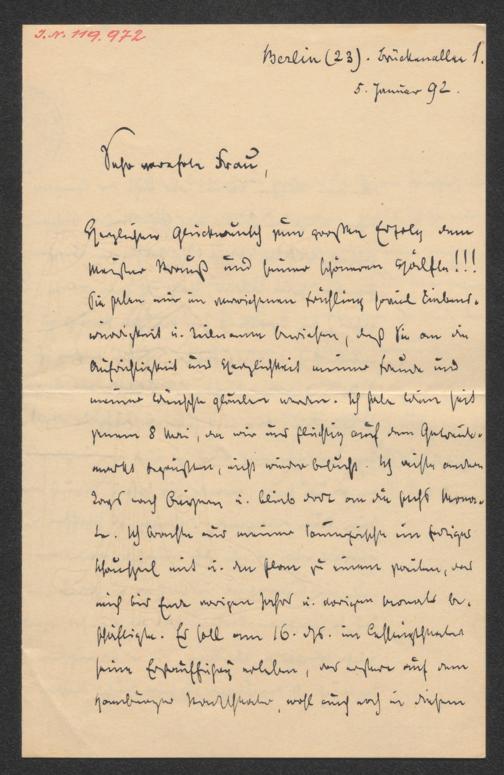 I.N. 119.972
Berlin (23). Brückenallee 1.
5. Januar 92.
Sehr verehrte Frau,
Herzlichen Glückwunsch zum großen Erfolg dem
Meister Strauß und seiner schöneren Hälfte!!!
Sie haben mir im verwichenen Frühling soviel Liebens-
würdigkeit u. Teilname bewiesen, daß Sie an die
Aufrichtigkeit und Herzlichkeit meiner Freude und
meiner Wünsche glauben werden. Ich habe Wien seit
jenem 8 Mai, da wir uns flüchtig auf dem Getreide-
markt begrüßten, nicht wieder besucht. Ich reiste andern
Tags nach u. blieb dort an die sechs Mona-
te. Ich brachte aus meiner Sommerfrische ein fertiges
Schauspiel mit u. den Plan zu einem zweiten, das
mich bis Ende vorigen Jahres u. vorigen Monats be-
schäftigte. Es soll am 16. ds. im Lessingtheater
seine Erstaufführung erleben, das erstere auf dem
Hamburger Stadttheater, wohl auch noch in diesem